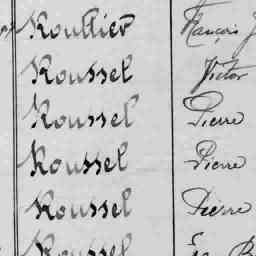 Roullier François J
Roussel Victor
Roussel Pierre
Roussel Pierre
Roussel Pierre
Roussel